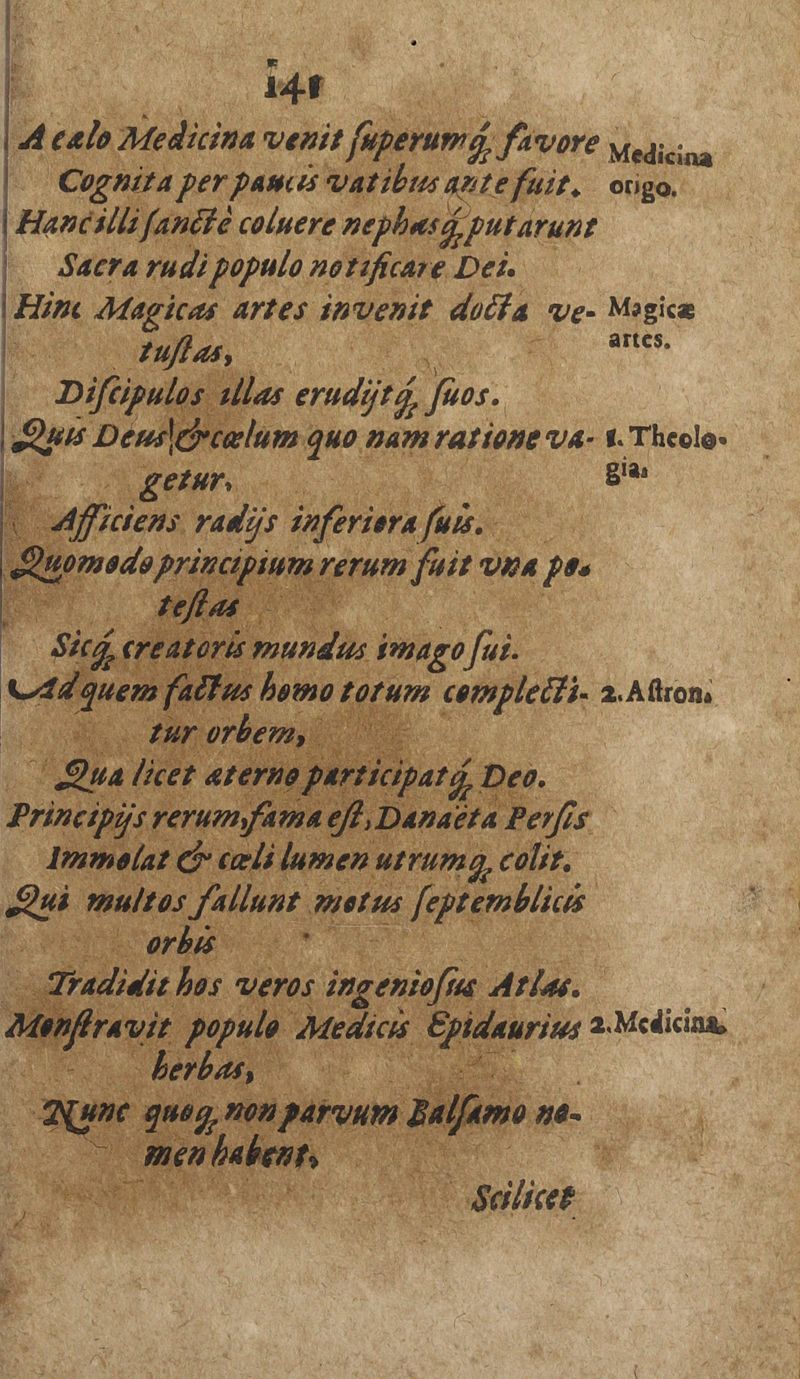 141
A cælo Medicina venit ſuperumq́ꝫ favore Medicinæ
Cognita per paucis vatibus ante fuit. origo.
Hanc illi ſanctè coluere nephasq́ꝫ putarunt
Sacra rudi populo notificare Dei.
Hinc Magicas artes invenit docta ve- Magicæ
tuſtas, artes.
Diſcipulos illas erudijtq́ꝫ ſuos.
Quis Deus & cœlum quo nam ratione va- 1. Theolo-
getur, gia.
Afficiens radijs inferiora ſuis.
Quomodo principium rerum fuit vna po-
teſtas
Sicq́ꝫ creatoris mundus imago ſui.
Ad quem factus homo totum complecti- 2. Aſtron.
tur orbem,
Qua licet æterno participatq́ꝫ Deo.
Principijs rerum, fama eſt, Danaëta Perſis
Immolat & cœli lumen utrumqꝫ colit.
Qui multos fallunt motus ſeptemblicis
orbis
Tradidit hos veros ingenioſus Atlas.
Monſtravit populo Medicis Epidaurius 2. Medicina.
herbas,
Nunc quoqꝫ non parvum Balſamo no-
men habent,
Scilicet